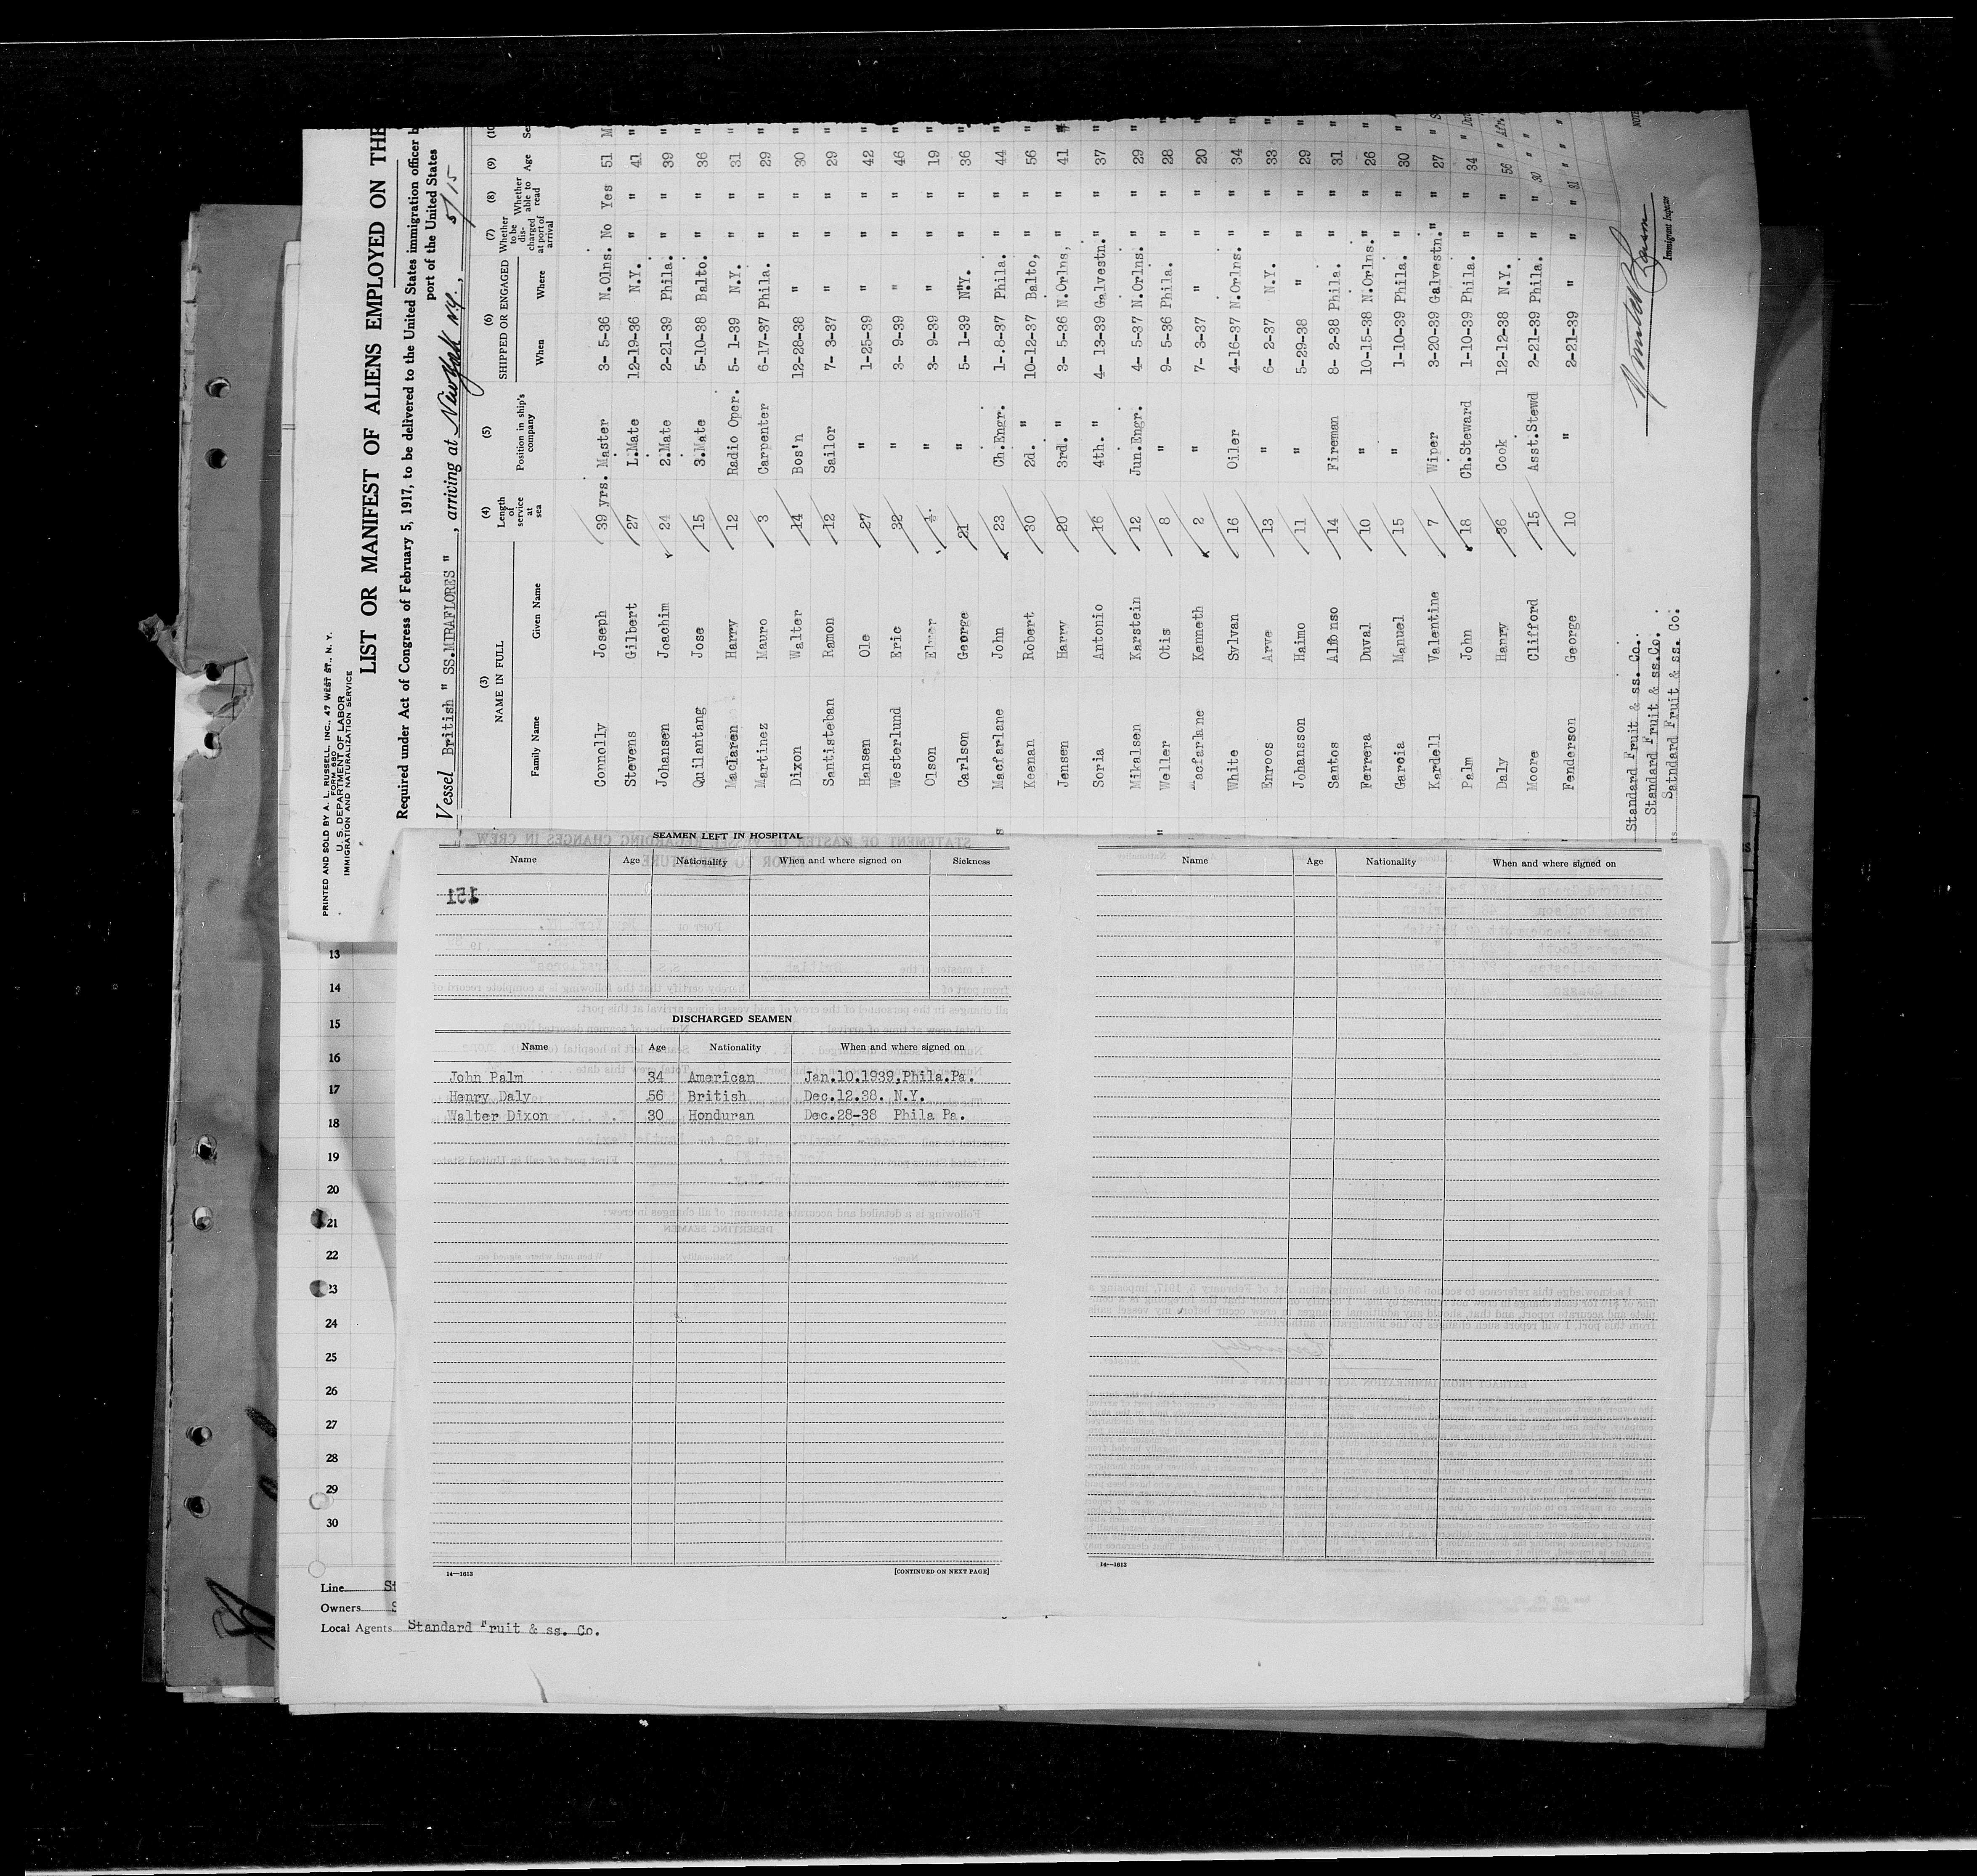 PRINTED AND SOLD BY A. L. RUSSELL, INC., 47 WEST ST., N. Y.
FORM 680
U. S. DEPARTMENT OF LABOR
IMMIGRATION AND NATURALIZATION SERVICE
LIST OR MANIFEST OF ALIENS EMPLOYED ON THE
Required under Act of Congress of February 5, 1917, to be delivered to the United States immigration officer
port of the United States
Vessel British " SS.MIRAFLORES " , arriving at New York N.Y. , 5/15
(3) (4) (5) (6) (7) (8) (9) (10
NAME IN FULL Length of service at sea Position in ship's company SHIPPED OR ENGAGED Whether to be discharged at port of arrival Whether able to read Age Se
Family Name Given Name When Where
Connolly Joseph 39 yrs. Master 3- 5-36 N.Olns. No Yes 51 M
Stevens Gilbert 27 1.Mate 12-19-36 N.Y. " " 41 "
Johansen Joachim 24 2.Mate 2-21-39 Phila. " " 39 "
Quilantang Jose 15 3.Mate 5-10-38 Balto. " " 36 "
Maclaren Harry 12 Radio Oper. 5- 1-39 N.Y. " " 31 "
Martinez Mauro 3 Carpenter 6-17-37 Phila. " " 29 "
Dixon Walter 14 Bos'n 12-28-38 " " " 30 "
Santisteban Ramon 12 Sailor 7- 3-37 " " " 29 "
Hansen Ole 27 " 1-25-39 " " " 42 "
Westerlund Eric 32 " 3- 9-39 " " " 46 "
Olson Elmer " 3- 9-39 " " " 19 "
Carlson George 21 " 5- 1-39 N.Y. " " 36 "
Macfarlane John 23 Ch.Engr. 1-.8-37 Phila. " " 44 "
Keenan Robert 30 2d. " 10-12-37 Balto, " " 56 "
Jensen Harry 20 3rd. " 3- 5-36 N.Orlns, " " 41 "
Soria Antonio 16 4th. " 4- 13-39 Galvestn. " " 37 "
Mikalsen Karstein 12 Jun.Engr. 4- 5-37 N.Orlns. " " 29 "
Weller Otis 8 " 9- 5-36 Phila. " " 28 "
Macfarlane Kenneth 2 " 7- 3-37 " " " 20 "
White Sylvan 16 Oiler 4-16-37 N.Orlns. " " 34 "
Enroos Arve 13 " 6- 2-37 N.Y. " " 33 "
Johansson Haimo 11 " 5-29-38 " " " 29 "
Santos Alfonso 14 Fireman 8- 2-38 Phila. " " 31 "
Ferrera Duval 10 " 10-15-38 N.Orlns. " " 26 "
Garcia Manuel 15 " 1-10-39 Phila. " " 30 "
Kardell Valentine 7 Wiper 3-20-39 Galvestn. " " 27 " S
Palm John 18 Ch.Steward 1-10-39 Phila. " " 34 "
Daly Henry 36 Cook 12-12-38 N.Y. " " 56 "
Moore Clifford 15 Asst.Stewd 2-21-39 Phila. " " 30 "
Fenderson George 10 " 2-21-39 " " " 31 "
Immigrant Inspector
Standard Fruit & ss. Co.
Standard Fruit & ss.Co.
Satndard Fruit & ss. Co.
SEAMEN LEFT IN HOSPITAL
Name Age Nationality When and where signed on Sickness
151
DISCHARGED SEAMEN
Name Age Nationality When and where signed on
John Palm 34 American Jan.10.1939,Phila.Pa.
Henry Daly 56 British Dec.12.38. N.Y.
Walter Dixon 30 Honduran Dec.28-38 Phila Pa.
14—1613
[CONTINUED ON NEXT PAGE]
Name Age Nationality When and where signed on
14—1613
13
14
15
16
17
18
19
20
21
22
23
24
25
26
27
28
29
30
Line St
Owners S
Local Agents Standard Fruit & ss. Co.